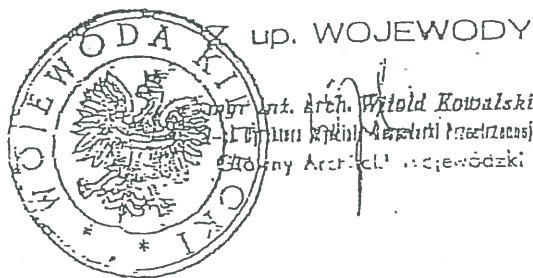 WOJEWODA KIELECKI
up. WOJEWODY
mgr inż. arch. Witold Kowalski
Główny Architekt Wojewódzki